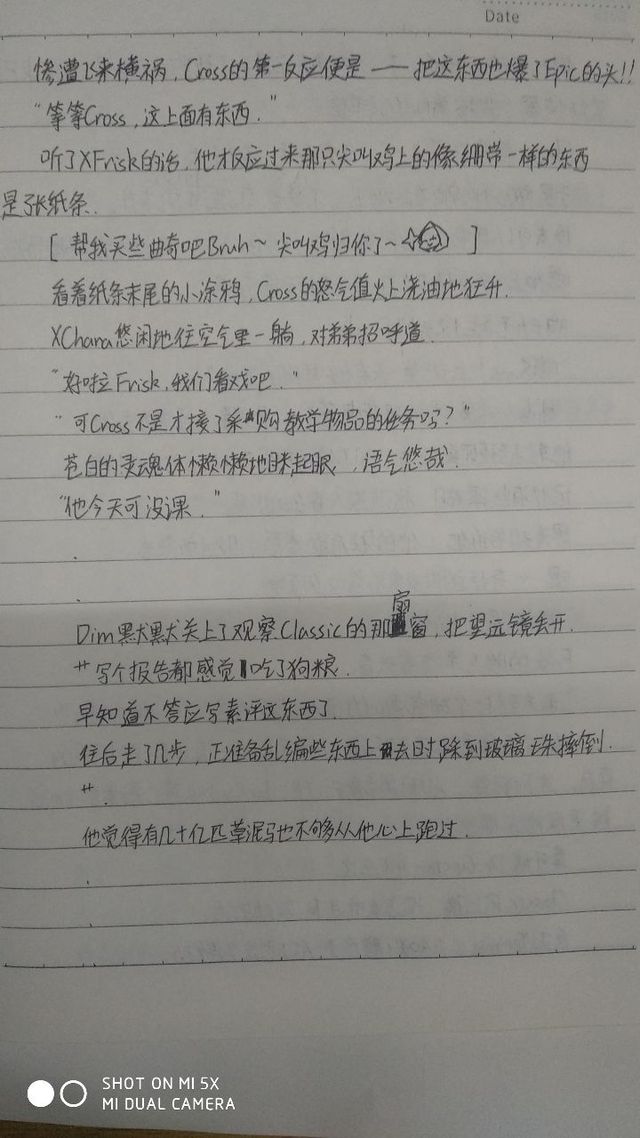 Date
惨遭飞来横祸，Cross的第一反应便是——把这东西也爆了Epic的头!!
“等等Cross，这上面有东西.”
听了XFrisk的话，他才反应过来那只尖叫鸡上的像绷带一样的东西
是张纸条.
[ 帮我买些曲奇吧Bruh~ 尖叫鸡归你了~ ]
看着纸条末尾的小涂鸦，Cross的怒气值火上浇油地狂升.
XChara悠闲地往空气里一躺，对弟弟招呼道.
“好啦Frisk，我们看戏吧.”
“可Cross不是才接了采购教学物品的任务吗？”
苍白的灵魂体懒懒地眯起眼，语气悠哉.
“他今天可没课.”
.
.
Dim默默关上了观察Classic的那扇窗，把望远镜丢开.
艹写个报告都感觉吃了狗粮.
早知道不答应写素评这东西了.
往后走了几步，正准备乱编些东西上去时踩到玻璃珠摔倒.
艹.
他觉得有几十亿匹草泥马也不够从他心上跑过.
.
SHOT ON MI 5X
MI DUAL CAMERA